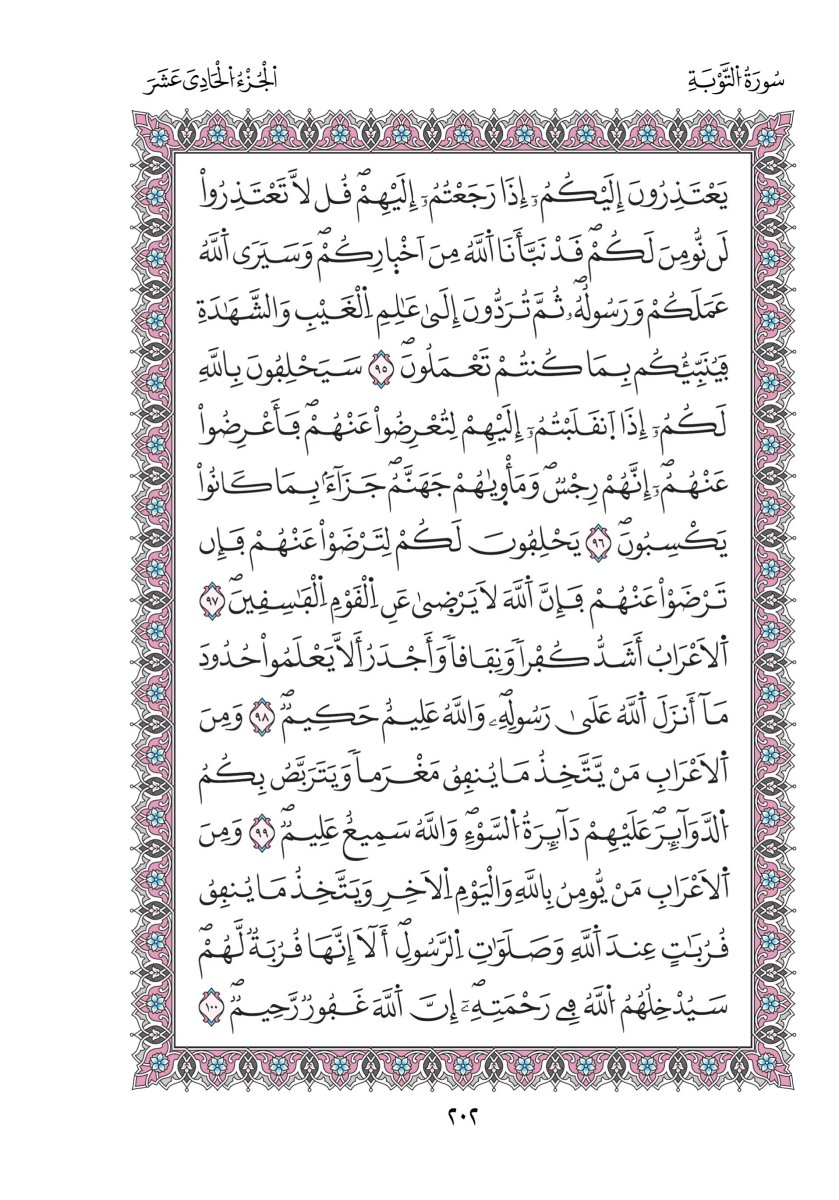 سُورَةُ اُ۬لتَّوْبَةِ
اَ۬لْجُزْءُ اُ۬لْحَادِى عَشَرَ
يَعْتَذِرُونَ إِلَيْكُمُۥٓ إِذَا رَجَعْتُمُۥٓ إِلَيْهِمْۖ قُل لَّا تَعْتَذِرُواْ
لَن نُّومِنَ لَكُمْۖ قَدْ نَبَّأَنَا اَ۬للَّهُ مِنَ اَخْبِارِكُمْۖ وَسَيَرَى اَ۬للَّهُ
عَمَلَكُمْ وَرَسُولُهُۥۖ ثُمَّ تُرَدُّونَ إِلَىٰ عَٰلِمِ اِ۬لْغَيْبِ وَالشَّهَٰدَةِ
فَيُنَبِّئُكُم بِمَا كُنتُمْ تَعْمَلُونَۖ ٩٥ سَيَحْلِفُونَ بِاللَّهِ
لَكُمُۥٓ إِذَا اَ۪نقَلَبْتُمُۥٓ إِلَيْهِمْ لِتُعْرِضُواْ عَنْهُمْۖ فَأَعْرِضُواْ
عَنْهُمُۥٓۖ إِنَّهُمْ رِجْسٌۖ وَمَأْو۪يٰهُمْ جَهَنَّمُۖ جَزَآءَۢ بِمَا كَانُواْ
يَكْسِبُونَۖ ٩٦ يَحْلِفُونَ لَكُمْ لِتَرْضَوْاْ عَنْهُمْ فَإِن
تَرْضَوْاْ عَنْهُمْ فَإِنَّ اَ۬للَّهَ لَا يَرْض۪يٰ عَنِ اِ۬لْقَوْمِ اِ۬لْفَٰسِقِينَۖ ٩٧
اَ۬لَاعْرَابُ أَشَدُّ كُفْراٗ وَنِفَاقاٗ وَأَجْدَرُ أَلَّا يَعْلَمُواْ حُدُودَ
مَآ أَنزَلَ اَ۬للَّهُ عَلَىٰ رَسُولِهِۦۖ وَاللَّهُ عَلِيمٌ حَكِيمٌۖ ٩٨ وَمِنَ
اَ۬لَاعْرَابِ مَنْ يَّتَّخِذُ مَا يُنفِقُ مَغْرَماٗ وَيَتَرَبَّصُ بِكُمُ
اُ۬لدَّوَآئِرَۖ عَلَيْهِمْ دَآئِرَةُ اُ۬لسَّوْءِۖ وَاللَّهُ سَمِيعٌ عَلِيمٌۖ ٩٩ وَمِنَ
اَ۬لَاعْرَابِ مَنْ يُّومِنُ بِاللَّهِ وَالْيَوْمِ اِ۬لَاخِرِ وَيَتَّخِذُ مَا يُنفِقُ
قُرُبَٰتٍ عِندَ اَ۬للَّهِ وَصَلَوَٰتِ اِ۬لرَّسُولِۖ أَلَآ إِنَّهَا قُرُبَةٞ لَّهُمْۖ
سَيُدْخِلُهُمُ اُ۬للَّهُ فِى رَحْمَتِهِۦٓۖ إِنَّ اَ۬للَّهَ غَفُورٞ رَّحِيمٌۖ ١٠٠
٢٠٢